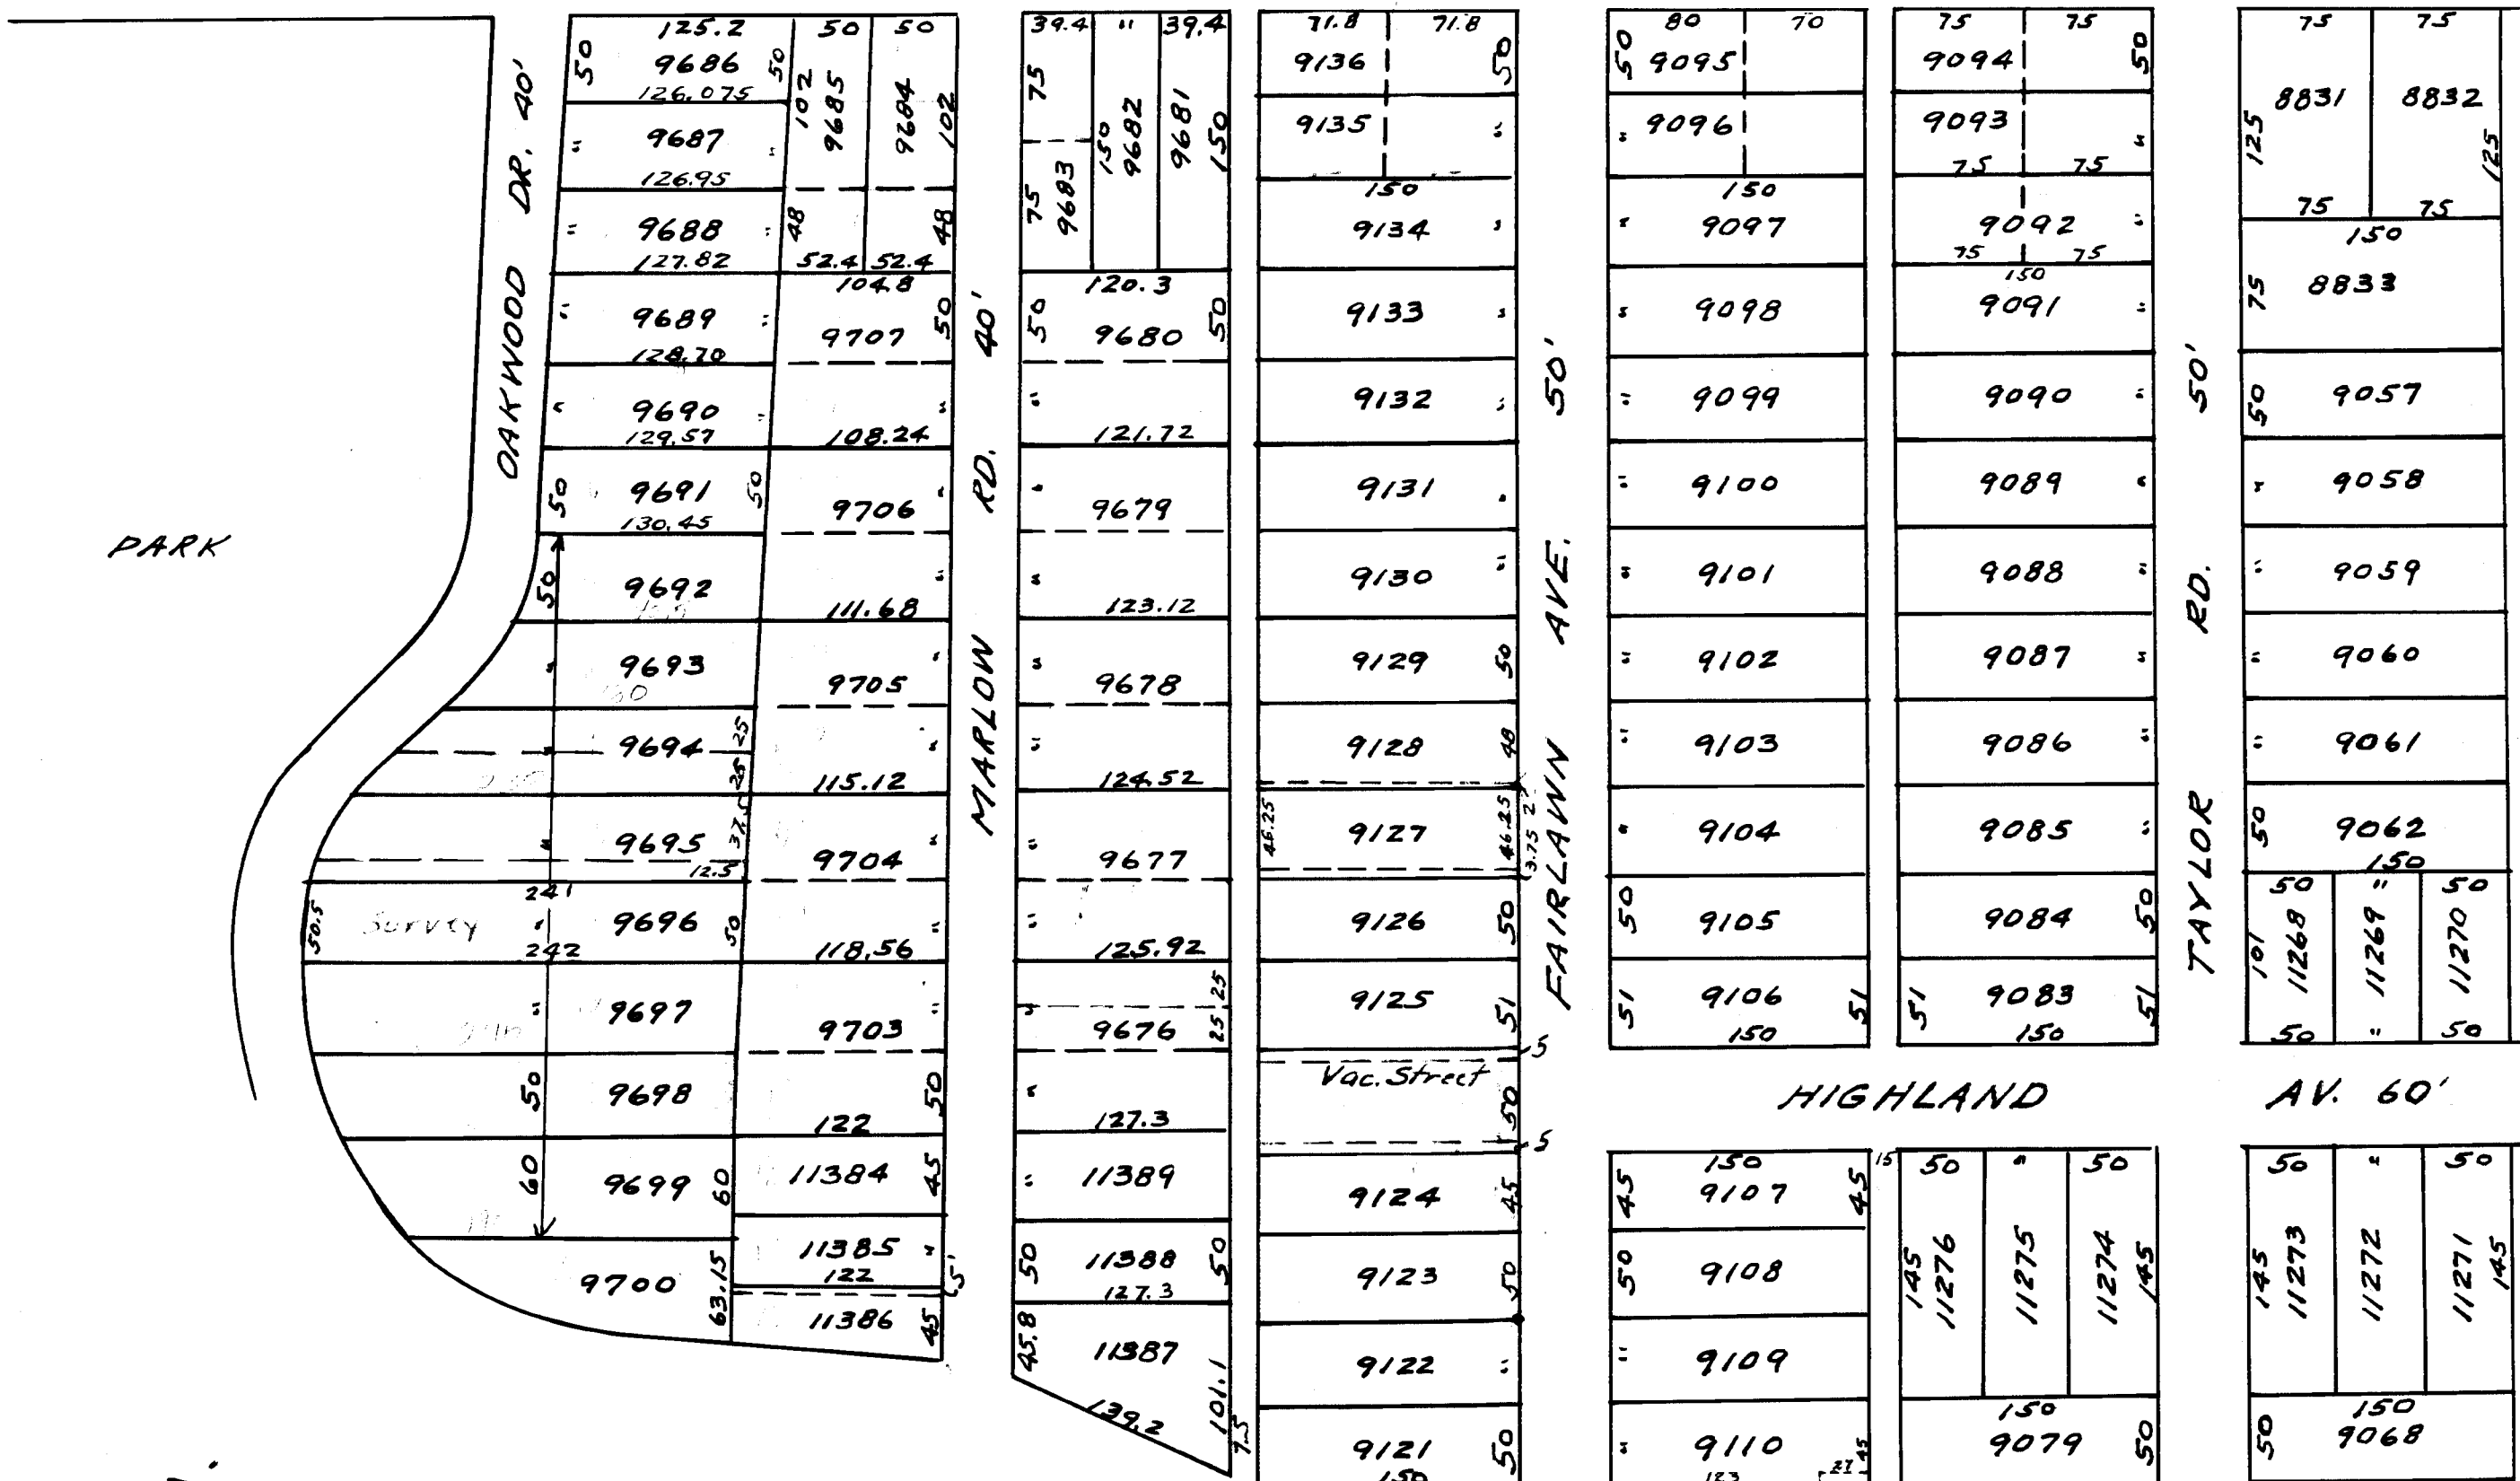 PARK
OAKWOOD DR. 40'
125.2
50 9686 50
126.075
" 9687 "
126.95
" 9688 "
127.82
" 9689 "
128.70
" 9690 "
129.57
50 9691 50
130.45
50 9692
" 9693
" 9694 25
25
" 9695 37.5
12.5
241
50.5 Survey " 9696 50
242
" 9697
50 9698
60 9699 60
9700 63.15
50 50
102 9685 9684 102
48 48
52.4 52.4
104.8
9707 50
"
108.24
9706 "
"
111.68
9705 "
"
115.12
9704 "
"
118.56
9703 "
50
122
11384 45
11385 "
122
5'
11386 45
MARLOW RD. 40'
39.4 " 39.4
75 150 9682 9681 150
75 9683
120.3
50 9680 50
"
121.72
" 9679
"
123.12
" 9678
"
124.52
" 9677
"
125.92
" 25
9676 25
"
127.3
" 11389
50 11388 50
127.3
45.8 11387 101.1
139.2
7.5
71.8 71.8
9136 50
9135 "
150
9134 "
9133 "
9132 "
9131 "
9130 "
9129 50
9128 48
2
46.25 9127 46.25
3.75
9126 50
9125 51
5
Vac. Street 50
5
9124 45
9123 50
9122 "
9121 50
150
FAIRLAWN AVE. 50'
80 70
50 9095
" 9096
150
" 9097
" 9098
" 9099
" 9100
" 9101
" 9102
" 9103
" 9104
50 9105
51 9106 51
150
75 75
9094 50
9093 "
75 75
9092 "
75 75
150
9091 "
9090 "
9089 "
9088 "
9087 "
9086 "
9085 "
9084 50
51 9083 51
150
TAYLOR RD. 50'
75 75
125 8831 8832 125
75 75
150
75 8833
50 9057
" 9058
" 9059
" 9060
" 9061
50 9062
150
50 " 50
101 11268 11269 11270
50 " 50
HIGHLAND AV. 60'
150
45 9107 45
50 9108
" 9109
" 9110 45
123 27
15 50 " 50
145 11276 11275 11274 145
150
9079 50
50 " 50
145 11273 11272 11271 145
150
50 9068